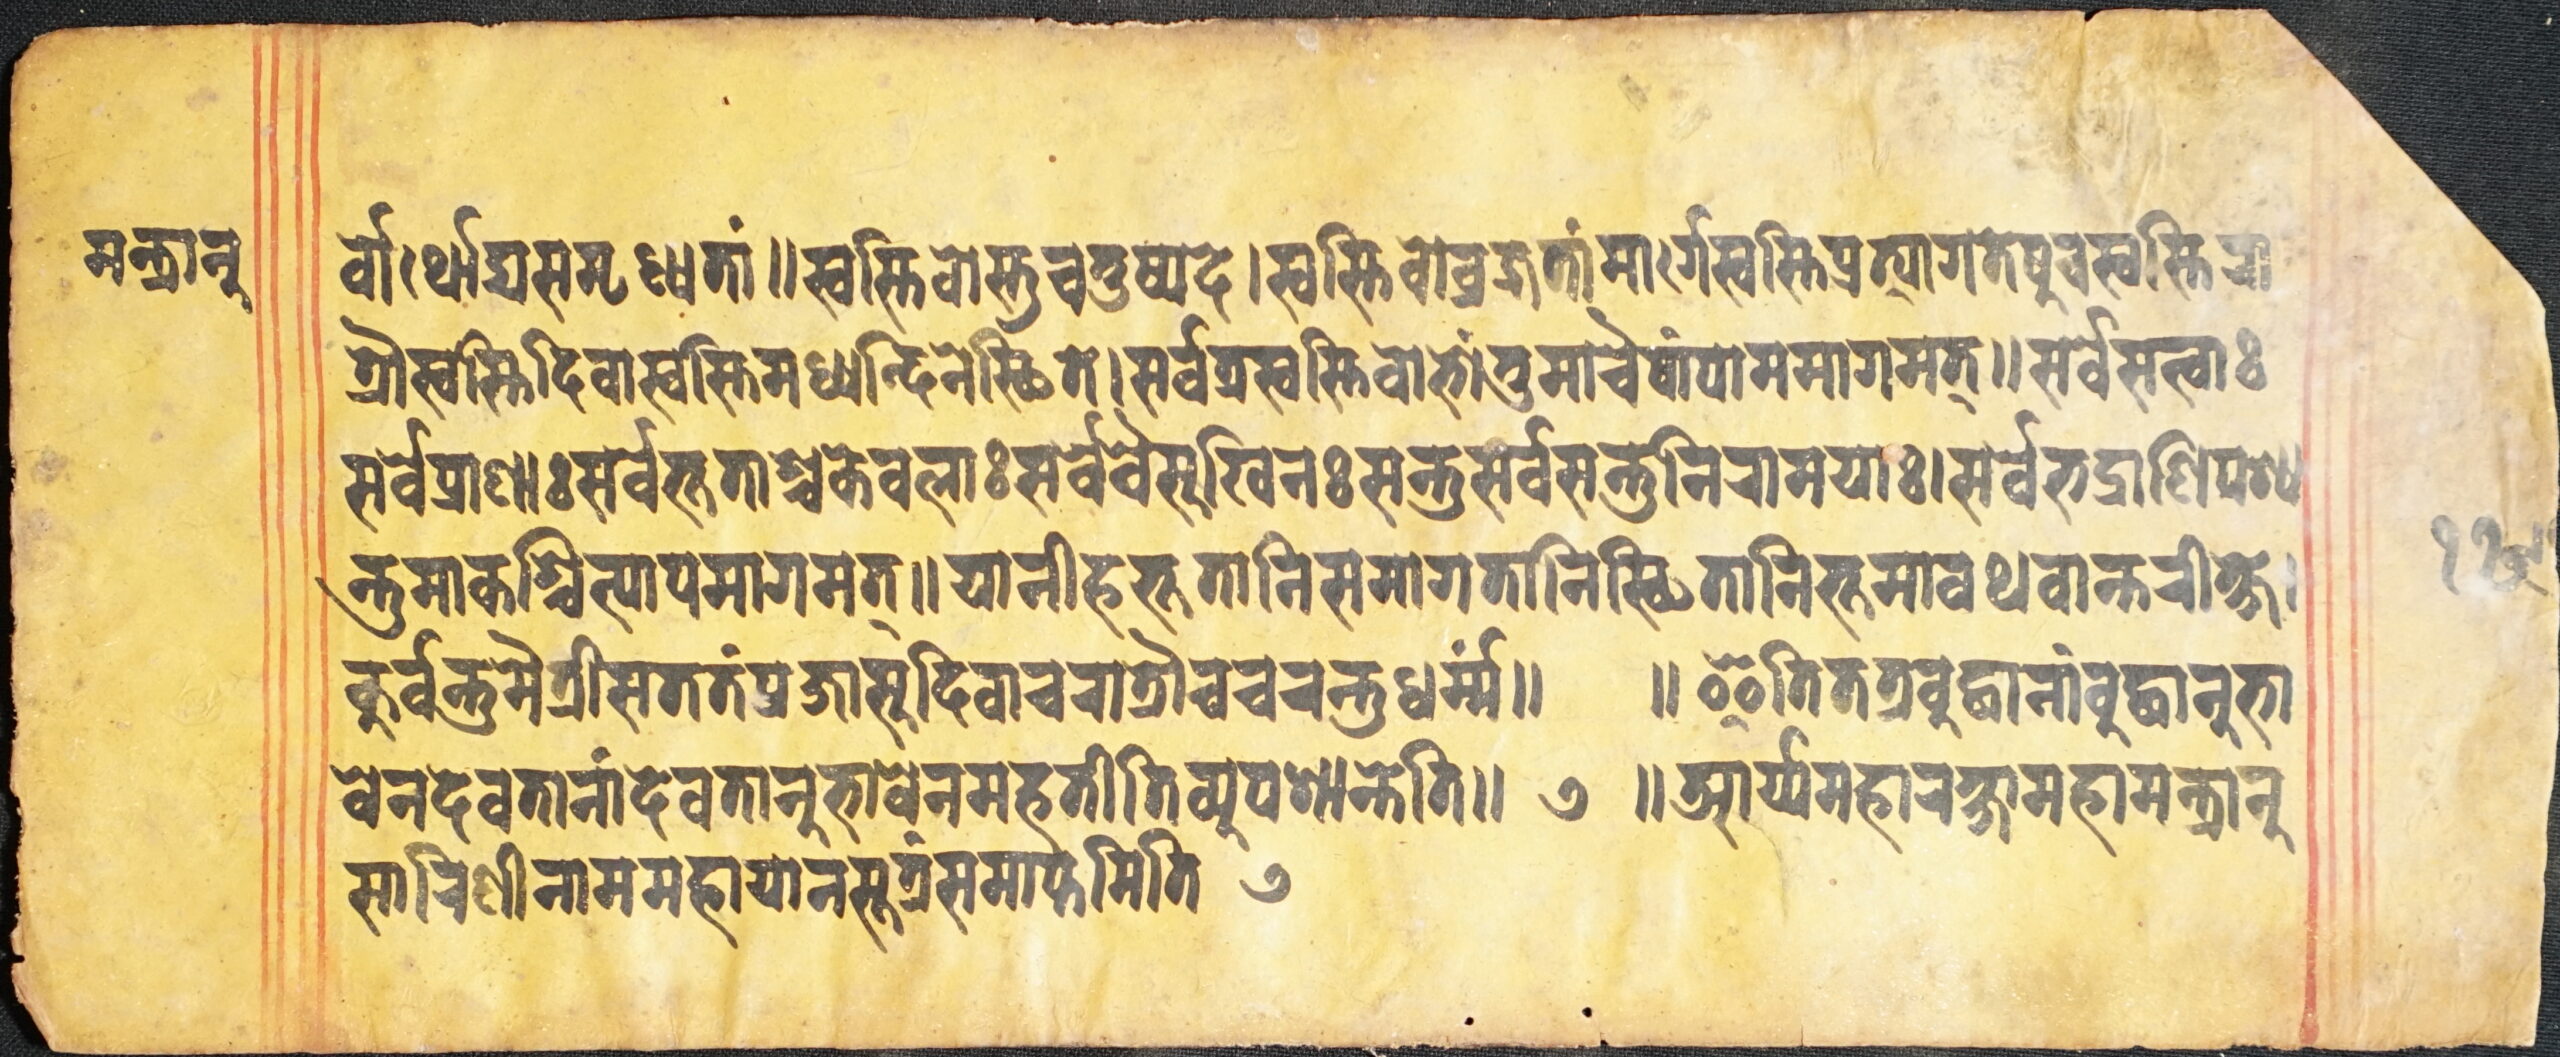 मन्त्रानु
र्वोऽर्थोद्यसमृध्यतां॥स्वस्तिवोस्तुचतुष्पदे।स्वस्तिवोव्रजतांमार्गेस्वस्तिप्रत्यागतेषुचस्वस्तिरा
त्रौस्वस्तिदिवास्वस्तिमध्यन्दिनेस्थिते।सर्वत्रस्वस्तिवोभोंतुमाचैषांपाममागमत्॥सर्वेसत्वाः
सर्वेप्राणाःसर्वेभूताश्चकेवलाःसर्वेवैसुखिनःसन्तुसर्वसन्तुनिरामयाः।सर्वेभद्राणिपश्य
न्तुमाकश्चित्पापमागमत्॥यानीहभूतानिसमागतानिस्थितानिभूमावथवान्तरीक्षे।
कुर्वन्तुमैत्रीसततंप्रजासुदिवाचरात्रौचचरन्तुधर्म्मं॥ ॥ॐतितत्रबुद्धानांबुद्धानुभा
वेनदेवतानांदेवतानुभावेनमहतीतिव्युपशान्तेति॥ ७ ॥आर्य्यमहारक्षामहामन्त्रानु
सारिणीनाममहायानसूत्रंसमाप्तमिति ७